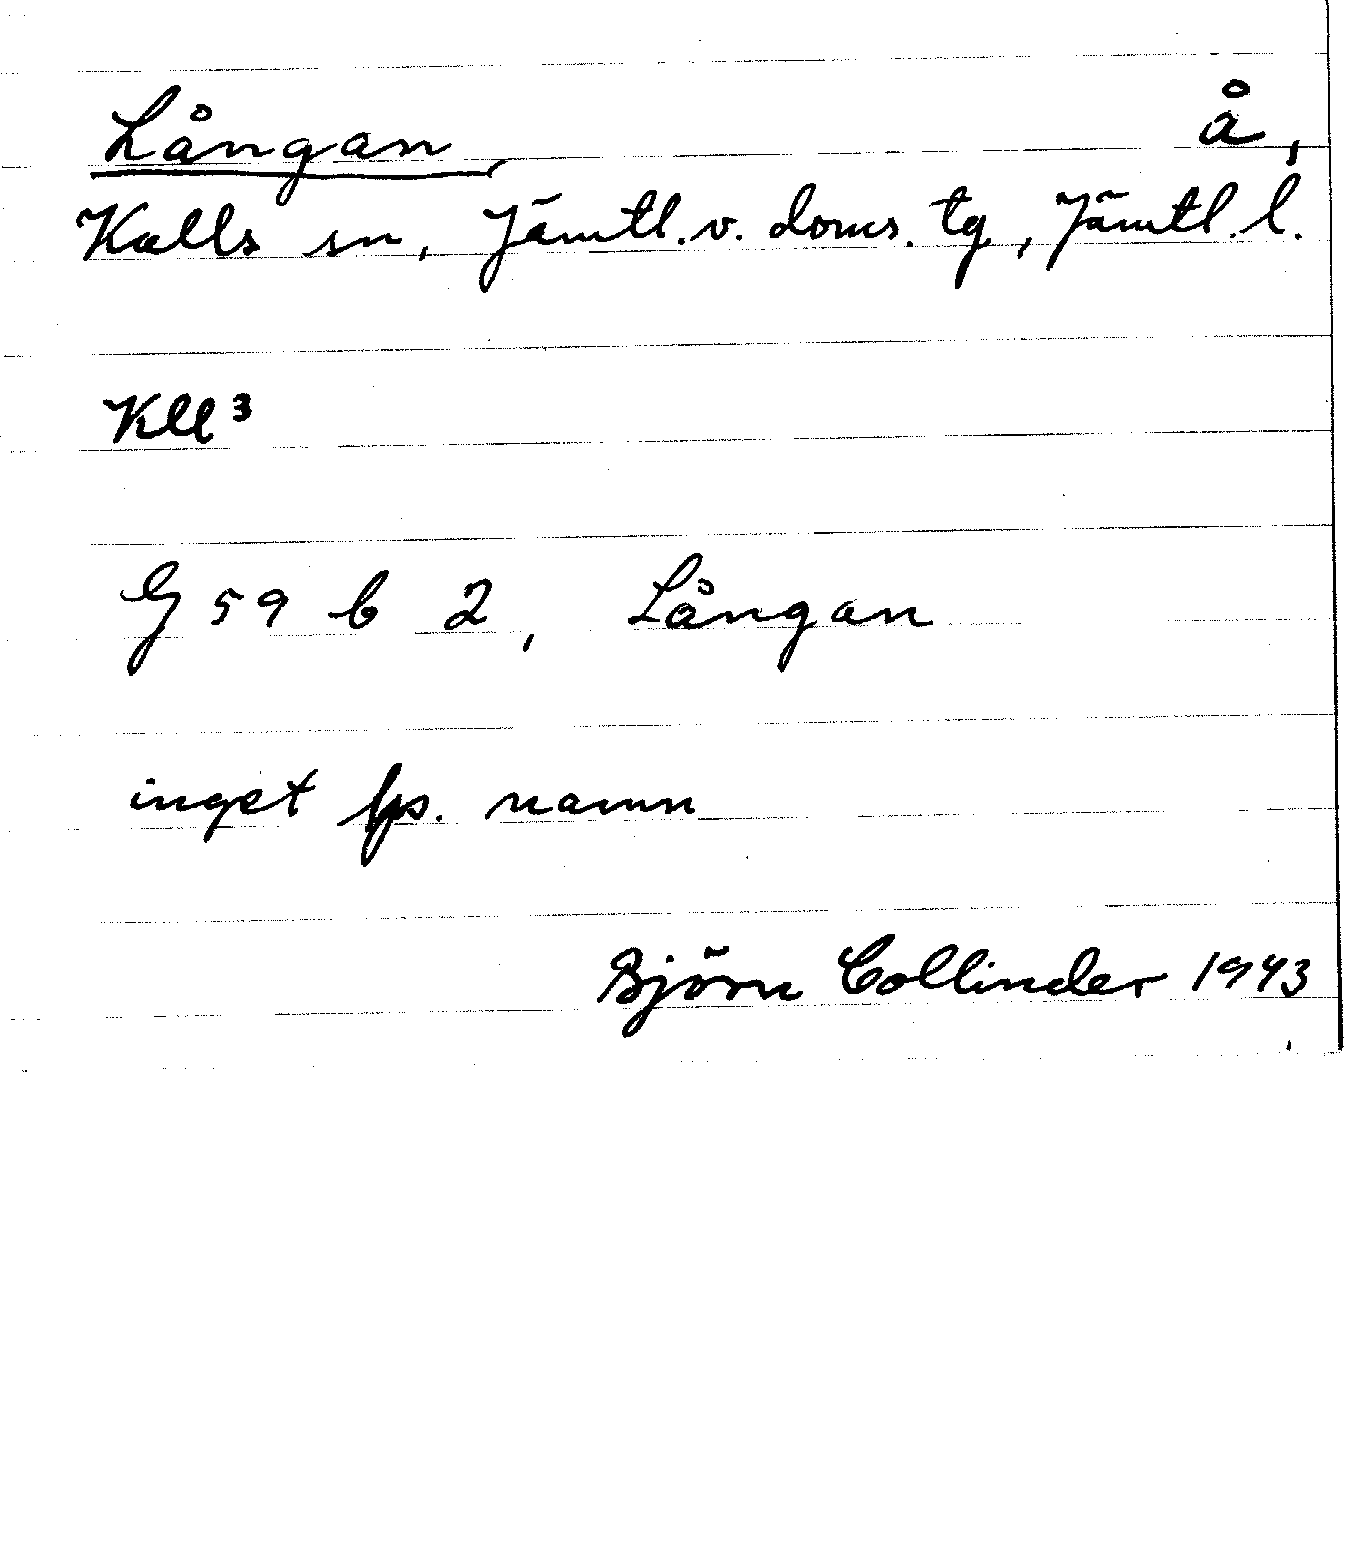 Långan, å,
Kalls sn, Jämtl. v. doms. tg, Jämtl. l.
Kll³
G 59 b 2, Långan
inget lps. namn
Björn Collinder 1943